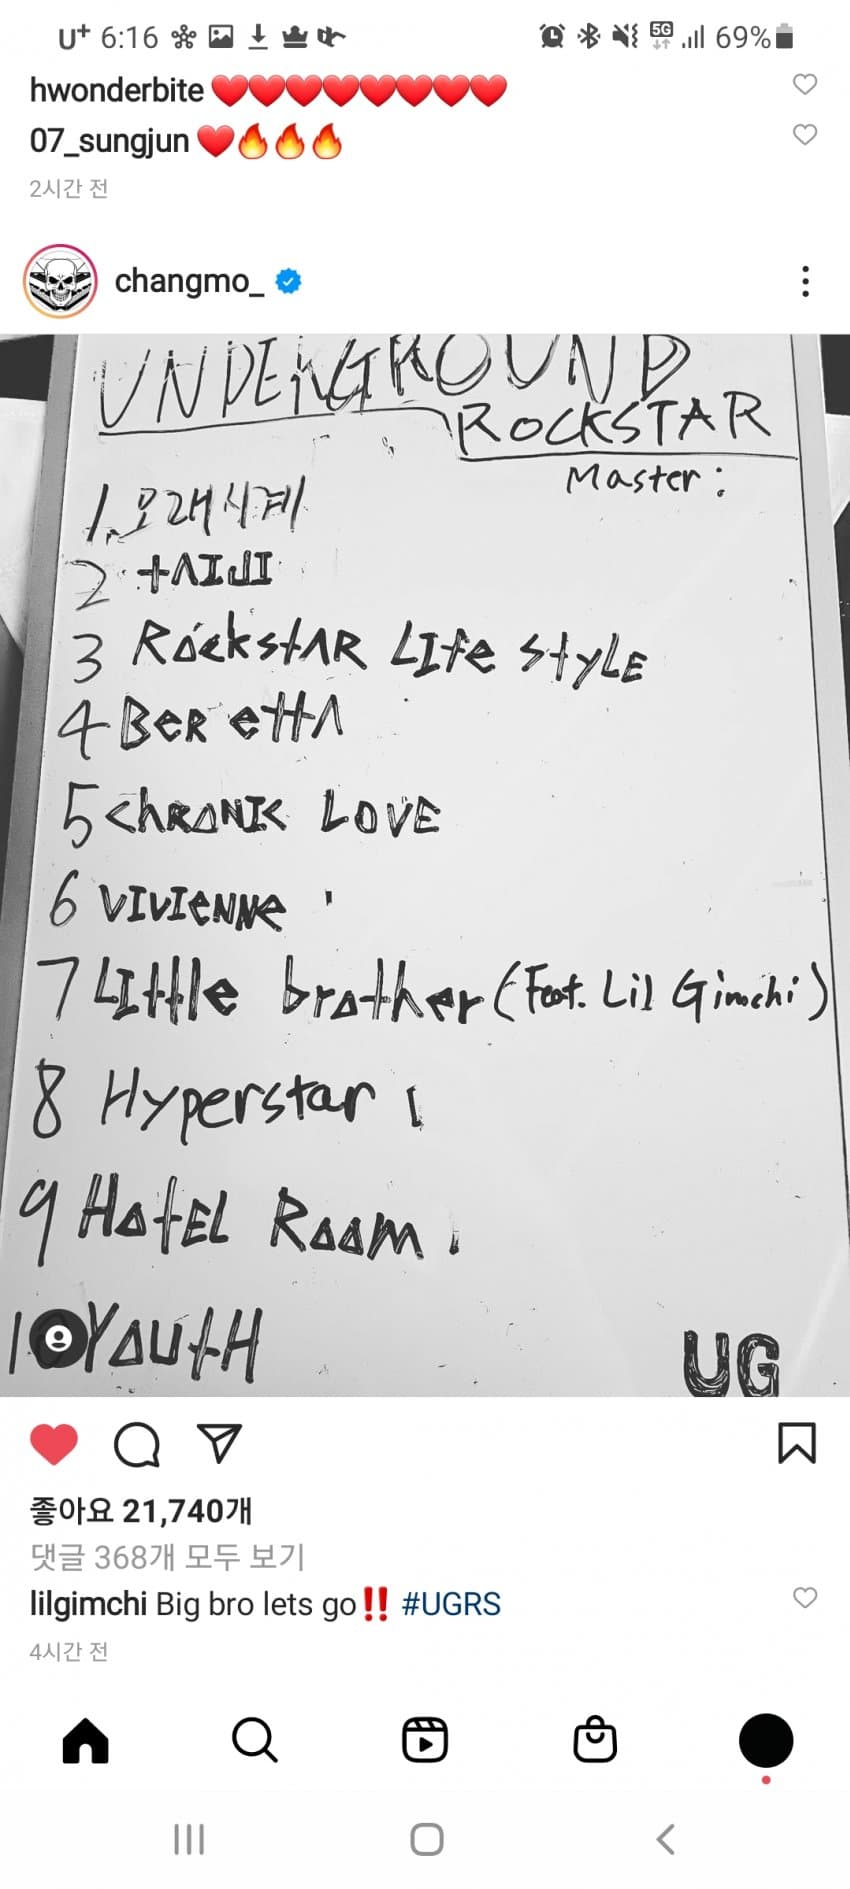 U+ 6:16 5G 69%
hwonderbite ❤️❤️❤️❤️❤️❤️❤️❤️
07_sungjun ❤️🔥🔥🔥
2시간 전
changmo_
UNDERGROUND
ROCKSTAR
Master :
1. 모래시계
2
3 RockstAR LIfe StyLE
4 BeR ettA
5 ChRONIC LOVE
6 VIVIeNNe
7 LIttle brother (Feat. Lil Gimchi)
8 Hyperstar
9 HotEL RooM
10 YoutH
UG
좋아요 21,740개
댓글 368개 모두 보기
lilgimchi Big bro lets go‼️ #UGRS
4시간 전